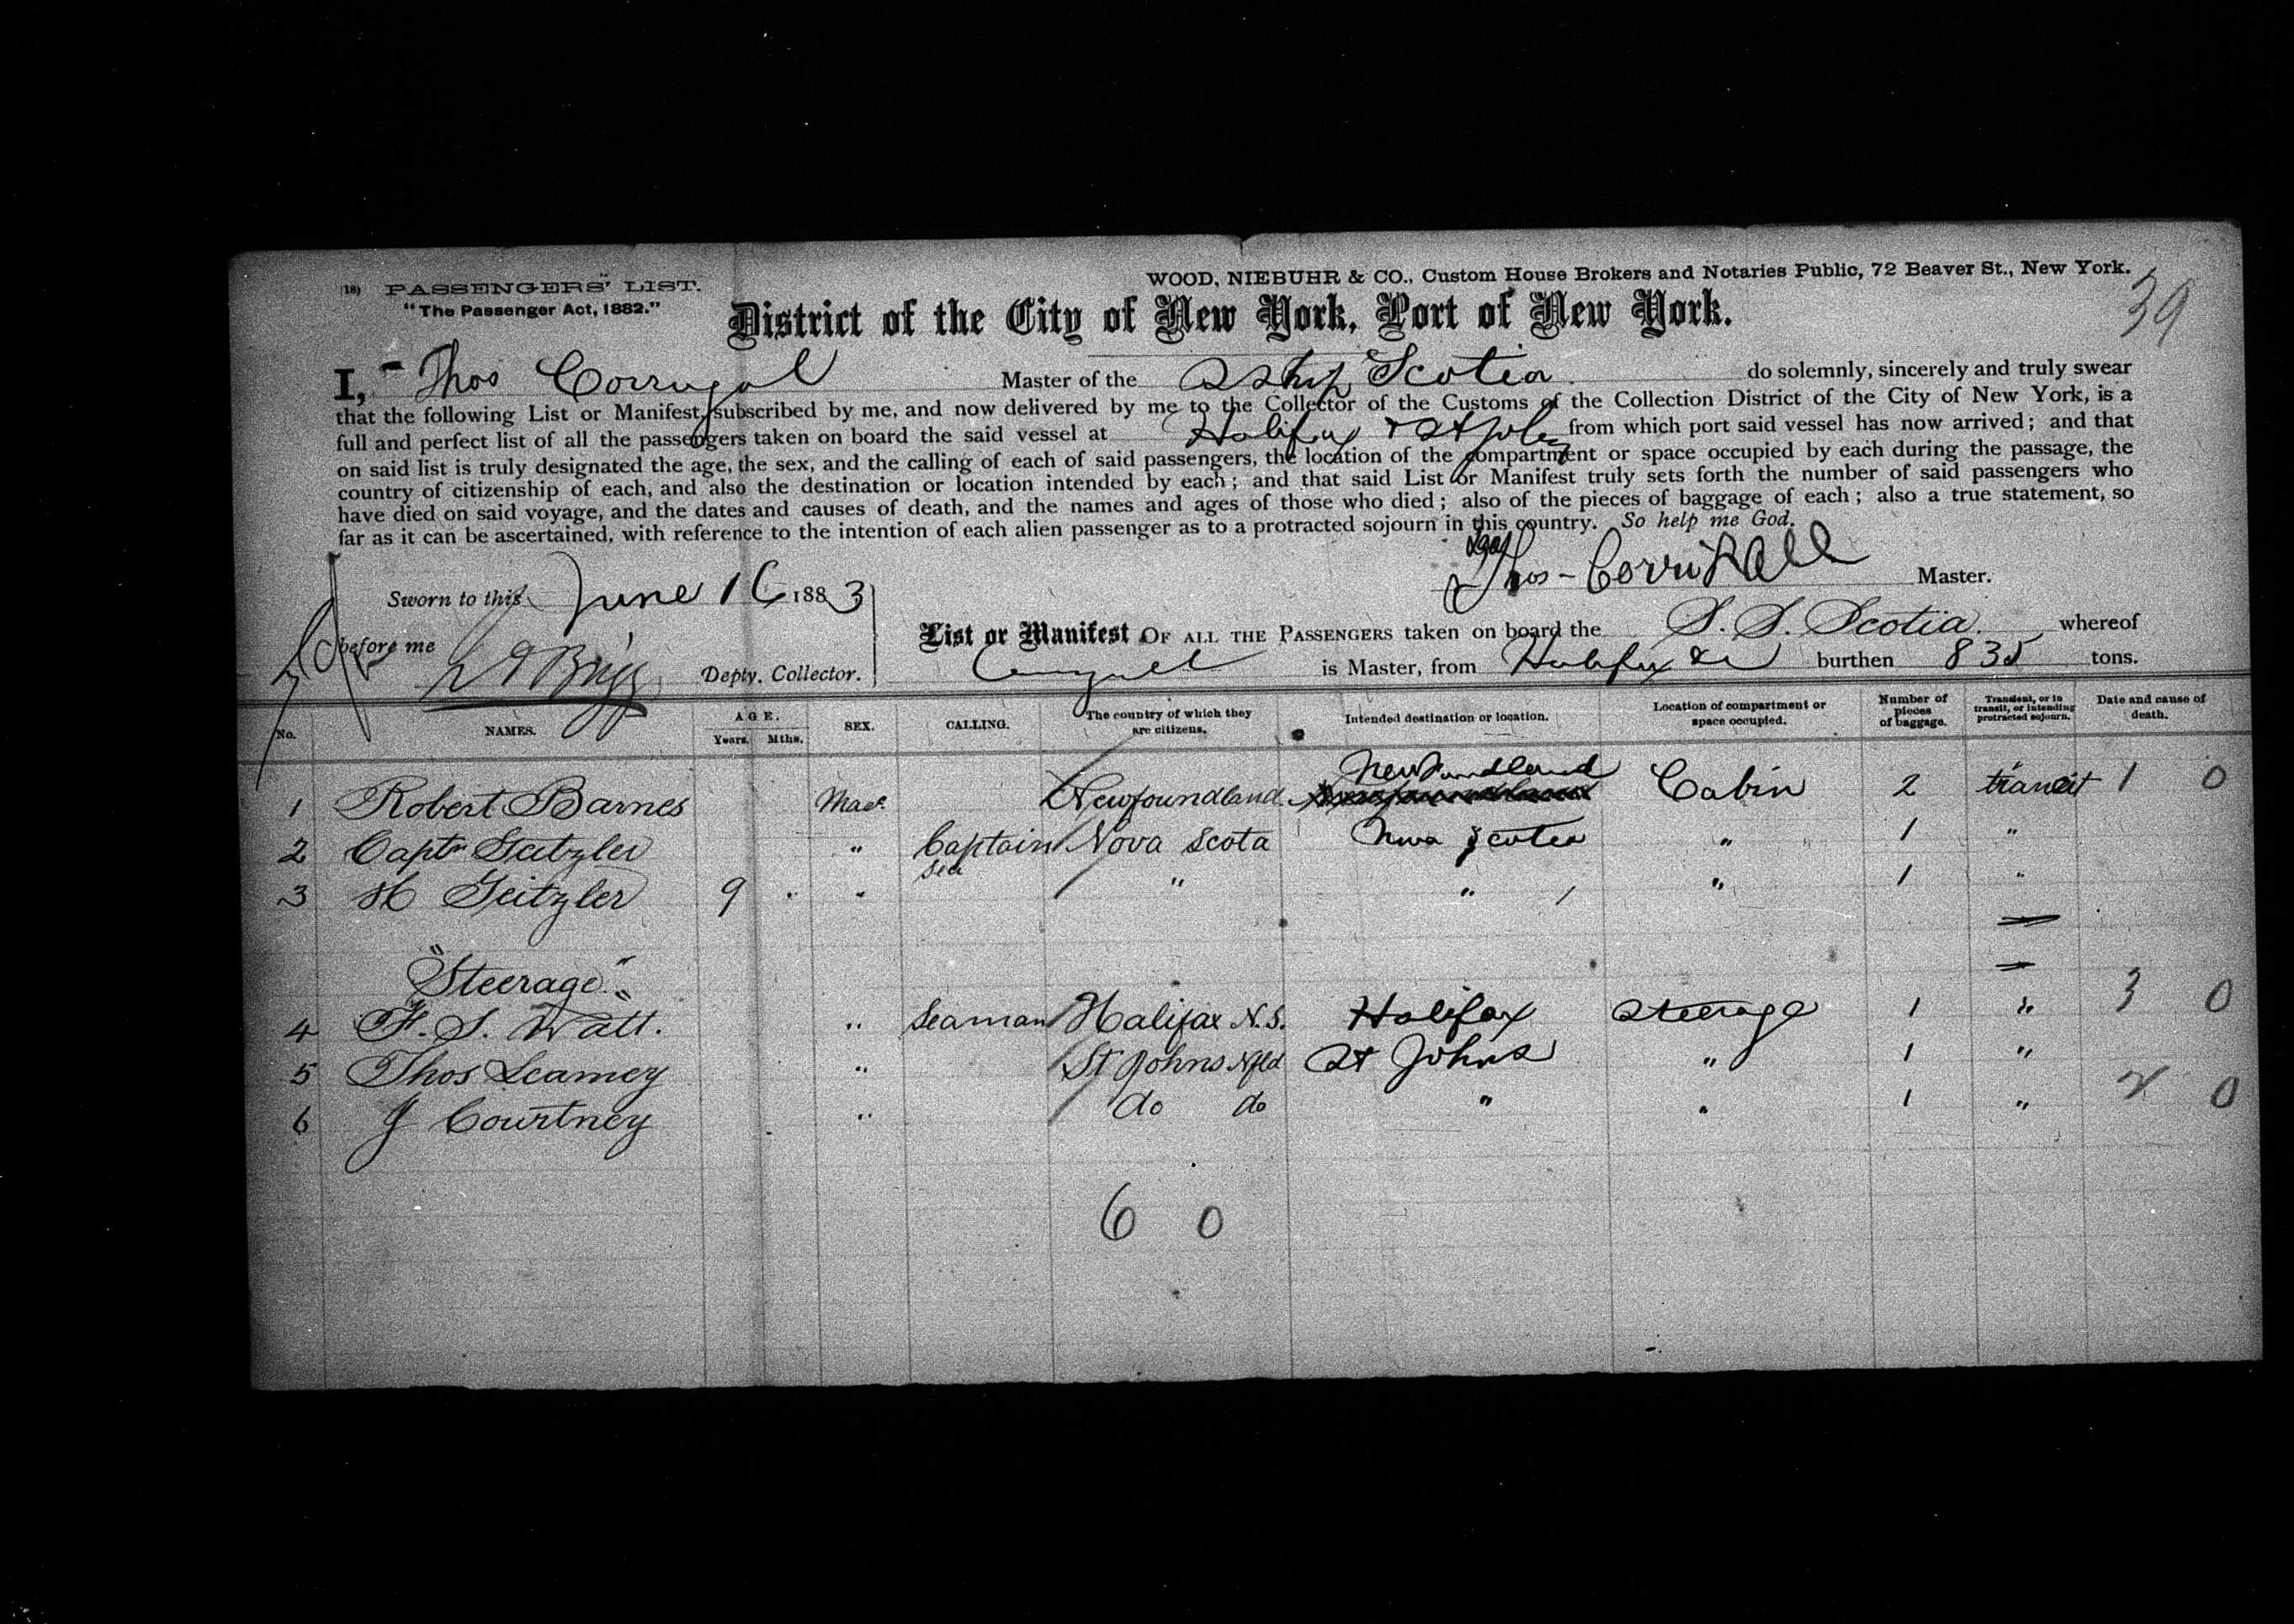 (18) PASSENGERS' LIST. WOOD, NIEBUHR & CO., Custom House Brokers and Notaries Public, 72 Beaver St., New York.
"The Passenger Act, 1882." 39
District of the City of New York, Port of New York.
I, Thos Corrigal Master of the SShip Scotia do solemnly, sincerely and truly swear
that the following List or Manifest, subscribed by me, and now delivered by me to the Collector of the Customs of the Collection District of the City of New York, is a
full and perfect list of all the passengers taken on board the said vessel at Halifax & St Johns from which port said vessel has now arrived; and that
on said list is truly designated the age, the sex, and the calling of each of said passengers, the location of the compartment or space occupied by each during the passage, the
country of citizenship of each, and also the destination or location intended by each; and that said List or Manifest truly sets forth the number of said passengers who
have died on said voyage, and the dates and causes of death, and the names and ages of those who died; also of the pieces of baggage of each; also a true statement, so
far as it can be ascertained, with reference to the intention of each alien passenger as to a protracted sojourn in this country. So help me God.
Thos Corrigall Master.
Sworn to this June 16 1883
before me Depty. Collector.
List or Manifest OF ALL THE PASSENGERS taken on board the S. S. Scotia whereof
is Master, from Halifax &c burthen 835 tons.
No. NAMES. AGE. Years. Mths. SEX. CALLING. The country of which they are citizens. Intended destination or location. Location of compartment or space occupied. Number of pieces of baggage. Transient, or in transit, or intending protracted sojourn. Date and cause of death.
1 Robert Barnes Male Newfoundland Newfoundland Cabin 2 transit 1 0
2 Captn Geitzler " Captain Sea Nova Scota Nova Scotia " 1 "
3 H Geitzler 9 " " " " 1 "
"Steerage"
4 F. S. Watt. " Seaman Halifax N.S. Halifax Steerage 1 " 3 0
5 Thos " St Johns Nfld St Johns " 1 "
6 J Courtney " do do " " 1 " 2 0
6 0